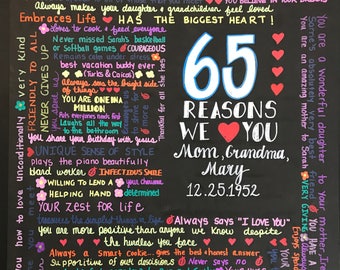 Always makes your daughter & grandchildren feel loved.
YOU BELIEVE IN YOUR
Embraces Life ♥ HAS THE BIGGEST HEART!
Loves to cook & feed everyone
Never missed Sarah's basketball
or softball games
COURAGEOUS
Remains calm under stress
best vacation buddy ever
(Turks & Caicos)
Always sees the bright
side of things
YOU ARE ONE IN A
MILLION
Puts everyone's needs first
Laughs all the way
to the bathroom
You share your birthday with Jesus.
Thankful for all she has
UNIQUE SENSE OF STYLE
plays the piano beautifully
Hard worker
INFECTIOUS SMILE
WILLING TO LEND A
HELPING HAND
determined
YOUR ZEST FOR LIFE
Treasures the simplest things in life
Always says "I LOVE YOU"
You are more positive than anyone we know despite
the hurdles you face
Always a Smart Cookie... goes the best honest Answer
Supportive of our decisions
Never says no
you how to love unconditionally
very kind
FRIENDLY TO ALL
NEVER GIVES UP
65
REASONS
WE ♥ YOU
Mom, Grandma,
Mary
12.25.1952
You are a wonderful daughter to your mother
Sarah's absolutely very best friend
VERY GIVING
YOU HAVE A
Enjoys